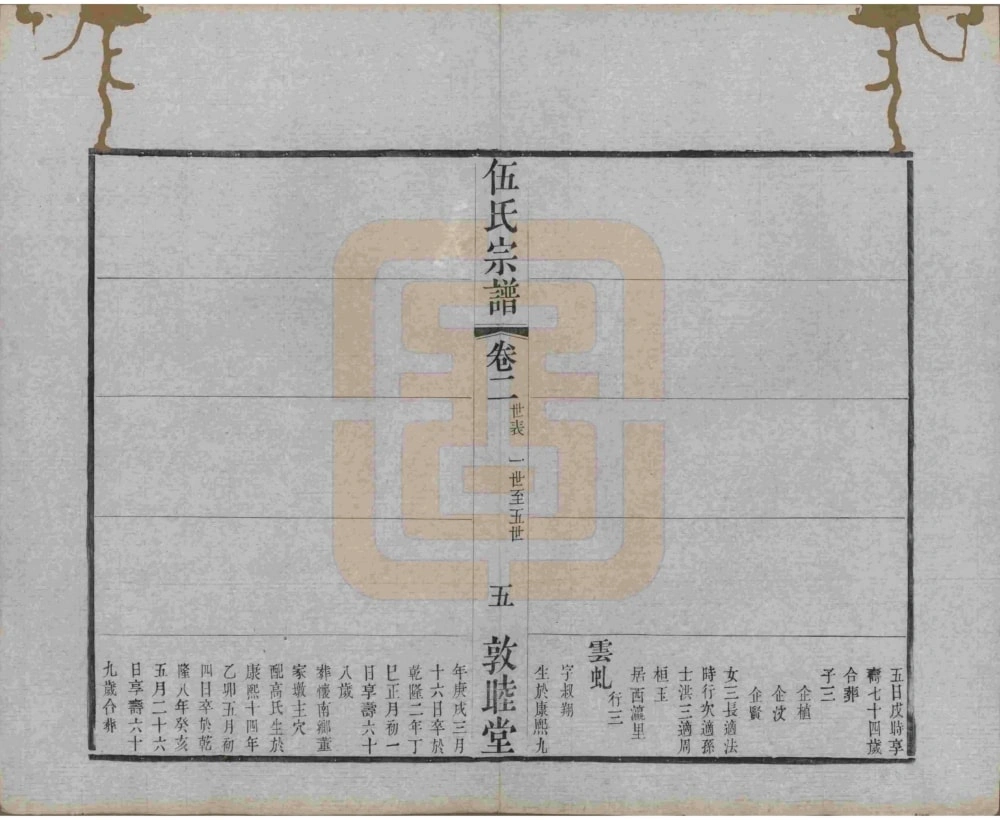 五日戌時享
壽七十四歲
合葬
子三
企植
企汶
企賢
女三長適法
時行次適孫
士洪三適周
桓玉
居西瀛里
雲虬
行三
字叔翔
生於康熙九
伍氏宗譜
卷二
世表 一世至五世
五
敦睦堂
年庚戌三月
十六日卒於
乾隆二年丁
巳正月初一
日享壽六十
八歲
葬懷南鄉董
家墩主穴
配高氏生於
康熙十四年
乙卯五月初
四日卒於乾
隆八年癸亥
五月二十六
日享壽六十
九歲合葬